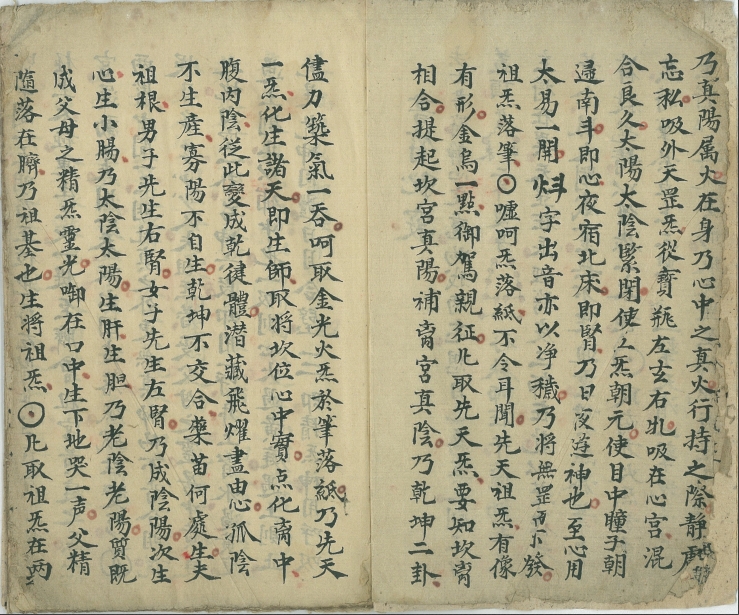 乃真陽属火在身乃心中之真火行持之際靜處
忘私吸外天罡炁從寶瓶左玄右牝吸在心宮混
合良久太陽太陰緊閉使炁朝元使目中瞳子朝
南斗即心夜宿北床即腎乃日夜遊神也至心用
太易一開字出音亦以净穢乃將無罡發
祖炁落筆〇噓呵炁落紙不令耳聞先天祖炁有像
有形金烏一點御駕親征凡取先天炁要知坎离
相合提起坎宮真陽補离宮真陰乃乾坤二卦
儘力築氣一吞呵取金光火炁於筆落紙乃先天
一炁化生諸天即生師取將坎位心中實点化离中
腹内陰從此變成乾健體潜藏飛耀盡由心孤陰
不生產寡陽不自生乾坤不交合藥苗何處生夫
祖根男子先生右腎女子先生左腎乃成陰陽次生
心生小腸乃太陰太陽生肝生胆乃老陰老陽質既
成父母之精炁靈光啣在口中生下地哭一声父精
隨落在臍乃祖基也生將祖炁〇凡取祖炁在两